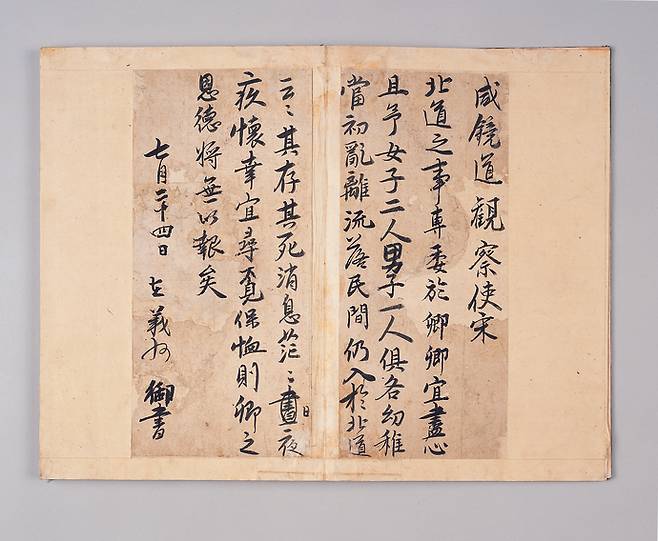 咸鏡道觀察使宋
北道之事專委於卿卿宜盡心
且予女子二人男子一人俱各幼稚
當初亂離流落民間仍入於北道
云〻其存其死消息茫〻晝夜
疚懷幸宜尋覓保恤則卿之
恩德將無以報矣
七月二十四日 在義州 御書
日